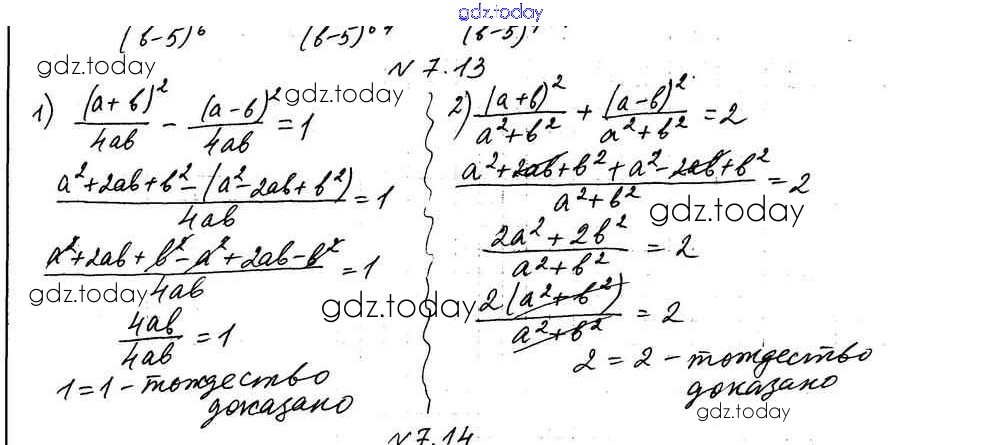 gdz.today
(b-5)⁶ (b-5)⁶ (b-5)
gdz.today
N 7.13
1) (a+b)²/4ab - (a-b)²/4ab = 1
gdz.today
a²+2ab+b²-(a²-2ab+b²)/4ab = 1
a²+2ab+b²-a²+2ab-b²/4ab = 1
gdz.today
4ab/4ab = 1
1=1 - тождество
доказано
2) (a+b)²/a²+b² + (a-b)²/a²+b² = 2
a²+2ab+b²+a²-2ab+b²/a²+b² = 2
gdz.today
2a²+2b²/a²+b² = 2
gdz.today
2(a²+b²)/a²+b² = 2
2=2 - тождество
доказано
gdz.today
N 7.14